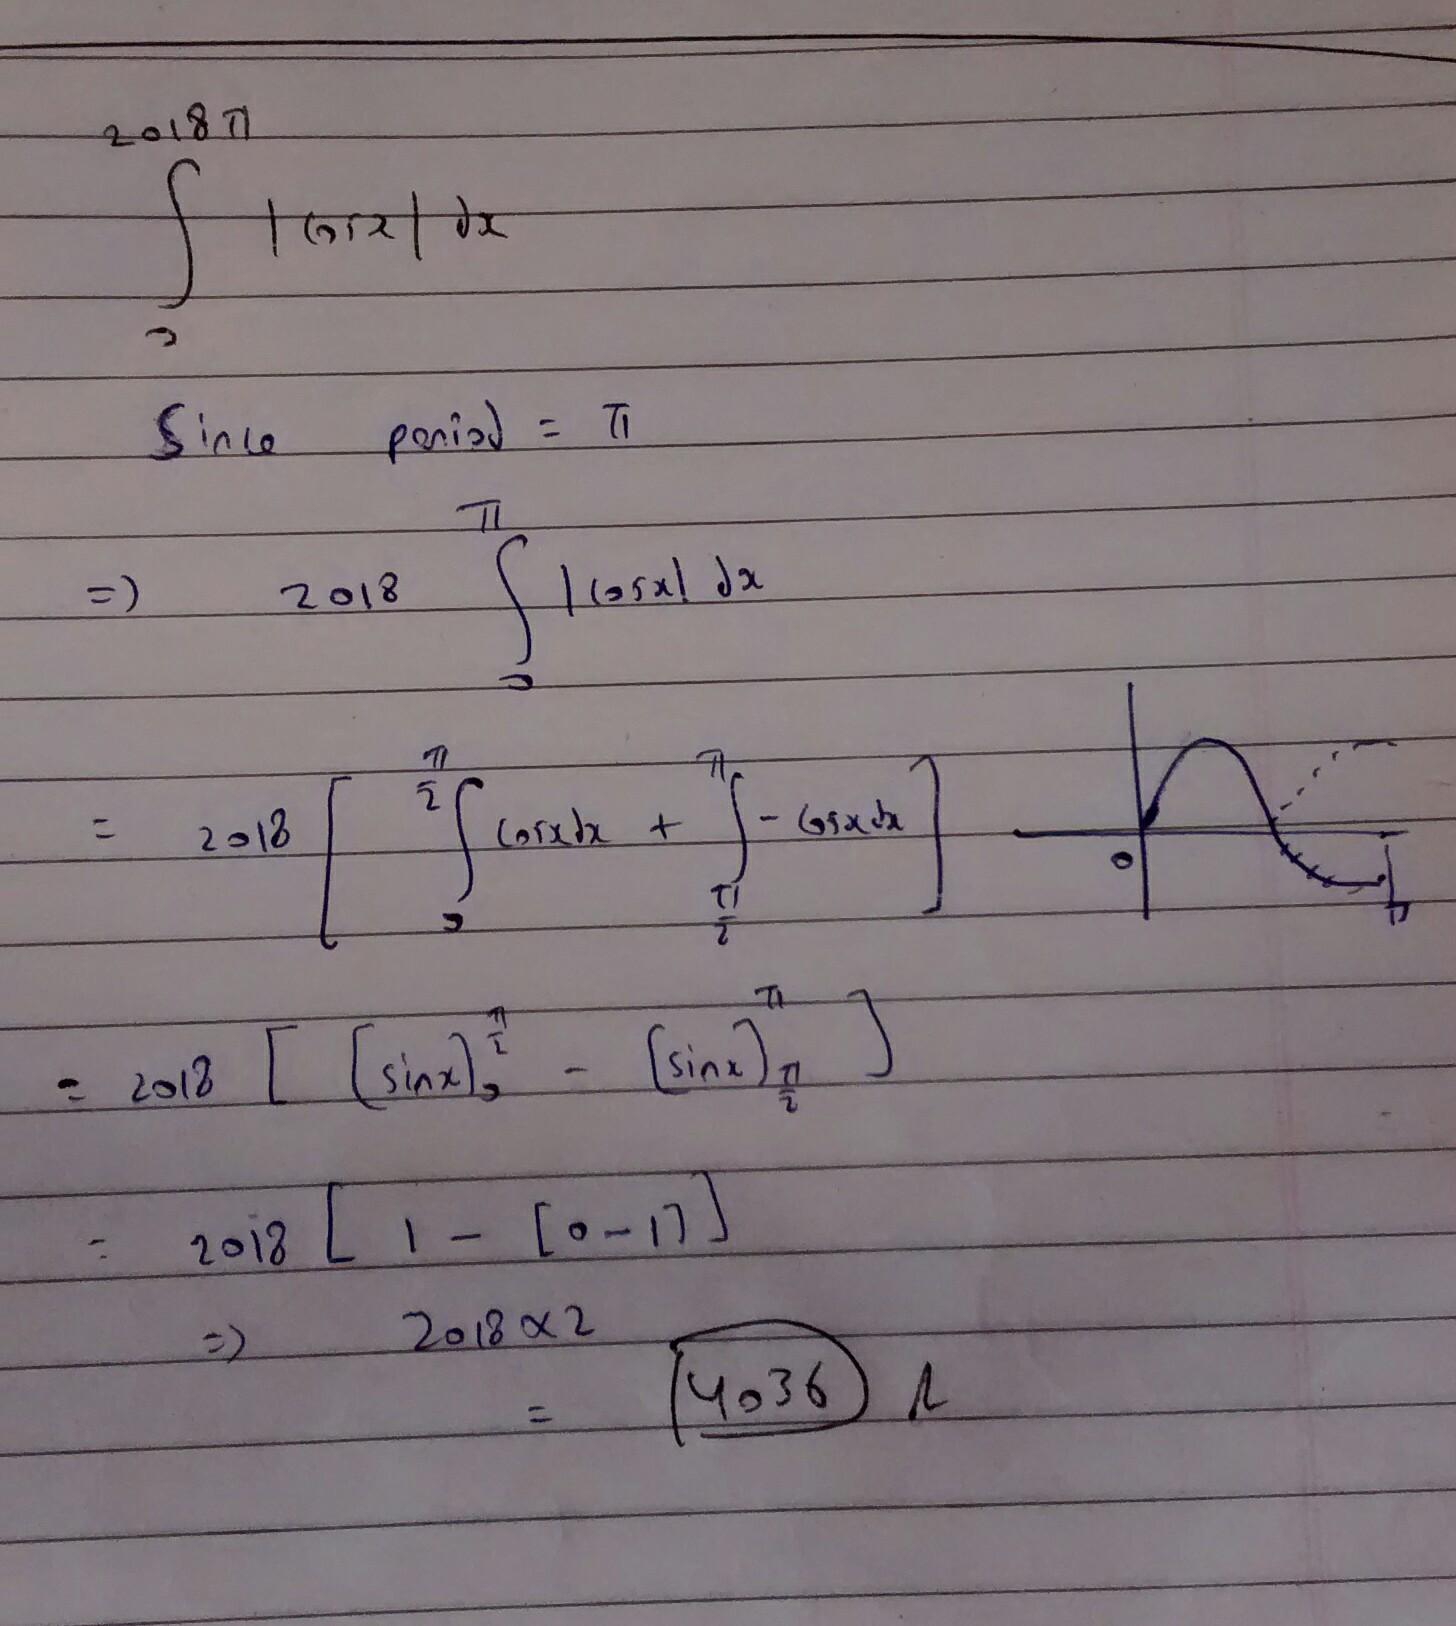 2018π
∫ |cosx| dx
0
Since period = π
π
=) 2018 ∫ |cosx| dx
0
= 2018 [ ∫₀^(π/2) cosxdx + ∫_(π/2)^π -cosxdx ]
0 π
= 2018 [ [sinx]₀^(π/2) - [sinx]_(π/2)^π ]
= 2018 [ 1 - [0-1] ]
=) 2018 x 2
= 4036